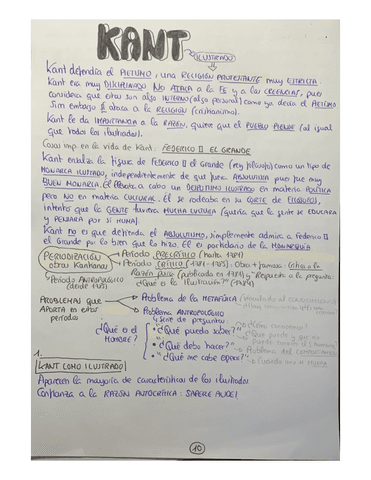 KANT → ILUSTRADO
Kant defendía el PIETISMO, una RELIGIÓN PROTESTANTE muy ESTRICTA.
Kant era muy DISCIPLINADO NO ATACA a la FE y a las CREENCIAS, pues
considera que estas son algo INTERNO (algo personal) como ya decía el PIETISMO
Sin embargo SÍ ataca a la RELIGIÓN (cristianismo).
Kant le da IMPORTANCIA a la RAZÓN, quiere que el PUEBLO PIENSE (al igual
que todos los ilustrados).
Cosa imp. en la vida de Kant: FEDERICO II EL GRANDE
Kant ensalza la figura de Federico II el Grande (rey filósofo) como un tipo de
MONARCA ILUSTRADO, independientemente de que fuera ABSOLUTISTA pues fue muy
BUEN MONARCA. Él lleva a cabo un DESPOTISMO ILUSTRADO en materia POLÍTICA
pero NO en materia CULTURAL. Él se rodeaba en su CORTE de FILÓSOFOS,
intentó que la GENTE tuviera MUCHA CULTURA (quería que la gente se EDUCARA
y PENSARA por sí misma).
Kant no es que defienda el ABSOLUTISMO, simplemente admira a Federico II
el Grande por lo bien que lo hizo. Él es partidario de la MONARQUÍA
PERIODIZACIÓN
obras Kantianas
Periodo PRECRÍTICO (hasta 1781)
Periodo CRÍTICO (1781-1785). Obra + famosa: Crítica a la
Razón Pura (publicada en 1781) y "Respuesta a la pregunta:
¿Qué es la Ilustración?" (1784)
Periodo ANTROPOLÓGICO
(desde 1785)
PROBLEMAS que
APORTA en este
periodo
Problema de la METAFÍSICA
Problema ANTROPOLÓGICO
serie de preguntas:
¿Qué es el
HOMBRE?
"¿Qué puedo saber?"
"¿Qué debo hacer?"
"¿Qué me cabe esperar?"
1.
KANT COMO ILUSTRADO
Aparecen la mayoría de características de los ilustrados
Confianza a la RAZÓN AUTOCRÍTICA: SAPERE AUDE!
10